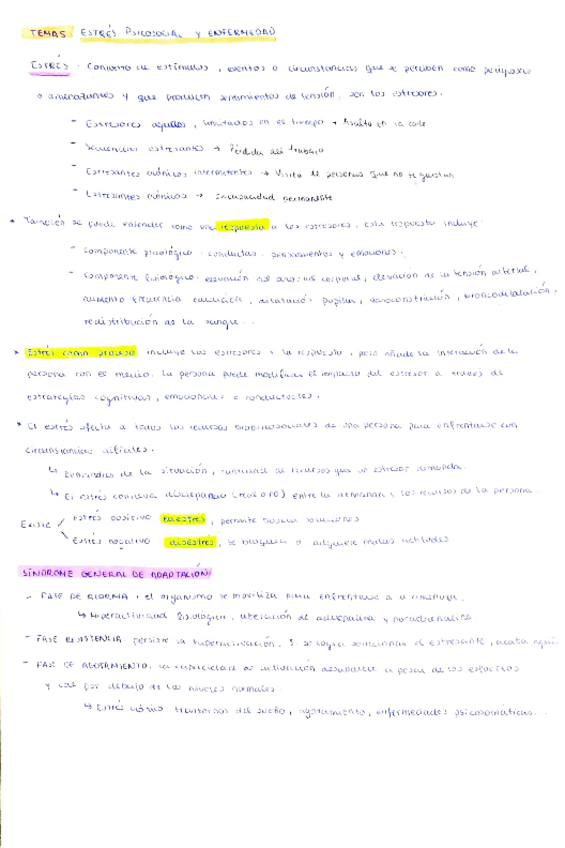 TEMA5 ESTRÉS PSICOSOCIAL Y ENFERMEDAD
ESTRÉS: Conjunto de estímulos, eventos o circunstancias que se perciben como peligrosos
o amenazantes y que producen sentimientos de tensión, son los estresores.
- Estresores agudos, limitados en el tiempo → Asalto en la calle
- Secuencias estresantes → Pérdida del trabajo
- Estresantes crónicos intermitentes → Visita de personas que no te gustan
- Estresantes crónicos → Incapacidad permanente
* También se puede entender como una respuesta a los estresores, esta respuesta incluye:
- Componente psicológico: conductas, pensamientos y emociones.
- Componente fisiológico: elevación del arousal corporal, elevación de la tensión arterial,
aumento frecuencia cardíaca, dilatación pupilar, vasoconstricción, broncodilatación,
redistribución de la sangre...
* Estrés como proceso incluye los estresores y la respuesta, pero añade la interacción de la
persona con el medio. La persona puede modificar el impacto del estresor a través de
estrategias cognitivas, emocionales o conductuales.
* El estrés afecta a todos los recursos biopsicosociales de una persona para enfrentarse con
circunstancias difíciles.
↳ Demandas de la situación, cantidad de recursos que un estresor demanda.
↳ El estrés conlleva discrepancia (real o no) entre la demanda y los recursos de la persona.
Existe Estrés positivo eustrés, permite buscar soluciones
Estrés negativo distrés, se bloquea o adquiere malas actitudes
SÍNDROME GENERAL DE ADAPTACIÓN
- FASE DE ALARMA: el organismo se moviliza para enfrentarse a la
↳ Hiperactividad fisiológica, liberación de adrenalina y noradrenalina
- FASE RESISTENCIA persiste la hiperactivación. Si se logra solucionar el estresante, acaba aquí.
- FASE DE AGOTAMIENTO. la capacidad de activación desaparece a pesar de los esfuerzos
y cae por debajo de los niveles normales.
↳ Estrés crónico: trastornos del sueño, agotamiento, enfermedades psicosomáticas...